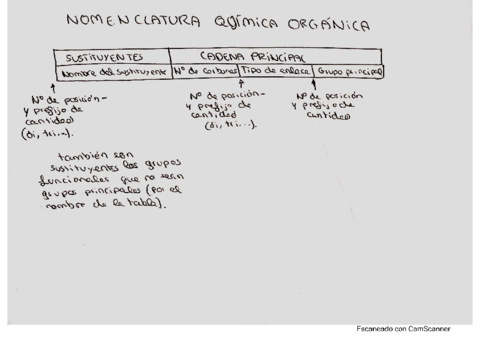 NOMENCLATURA QUÍMICA ORGÁNICA
SUSTITUYENTES CADENA PRINCIPAL
Nombre del sustituyente Nº de carbonos Tipo de enlace Grupo principal
Nº de posición-
y prefijo de
cantidad
(di, tri...)
Nº de posición-
y prefijo de
cantidad
(di, tri...).
Nº de posición
y prefijo de
cantidad)
también son
sustituyentes los grupos
funcionales que no sean
grupos principales (por el
nombre de la tabla).
Escaneado con CamScanner